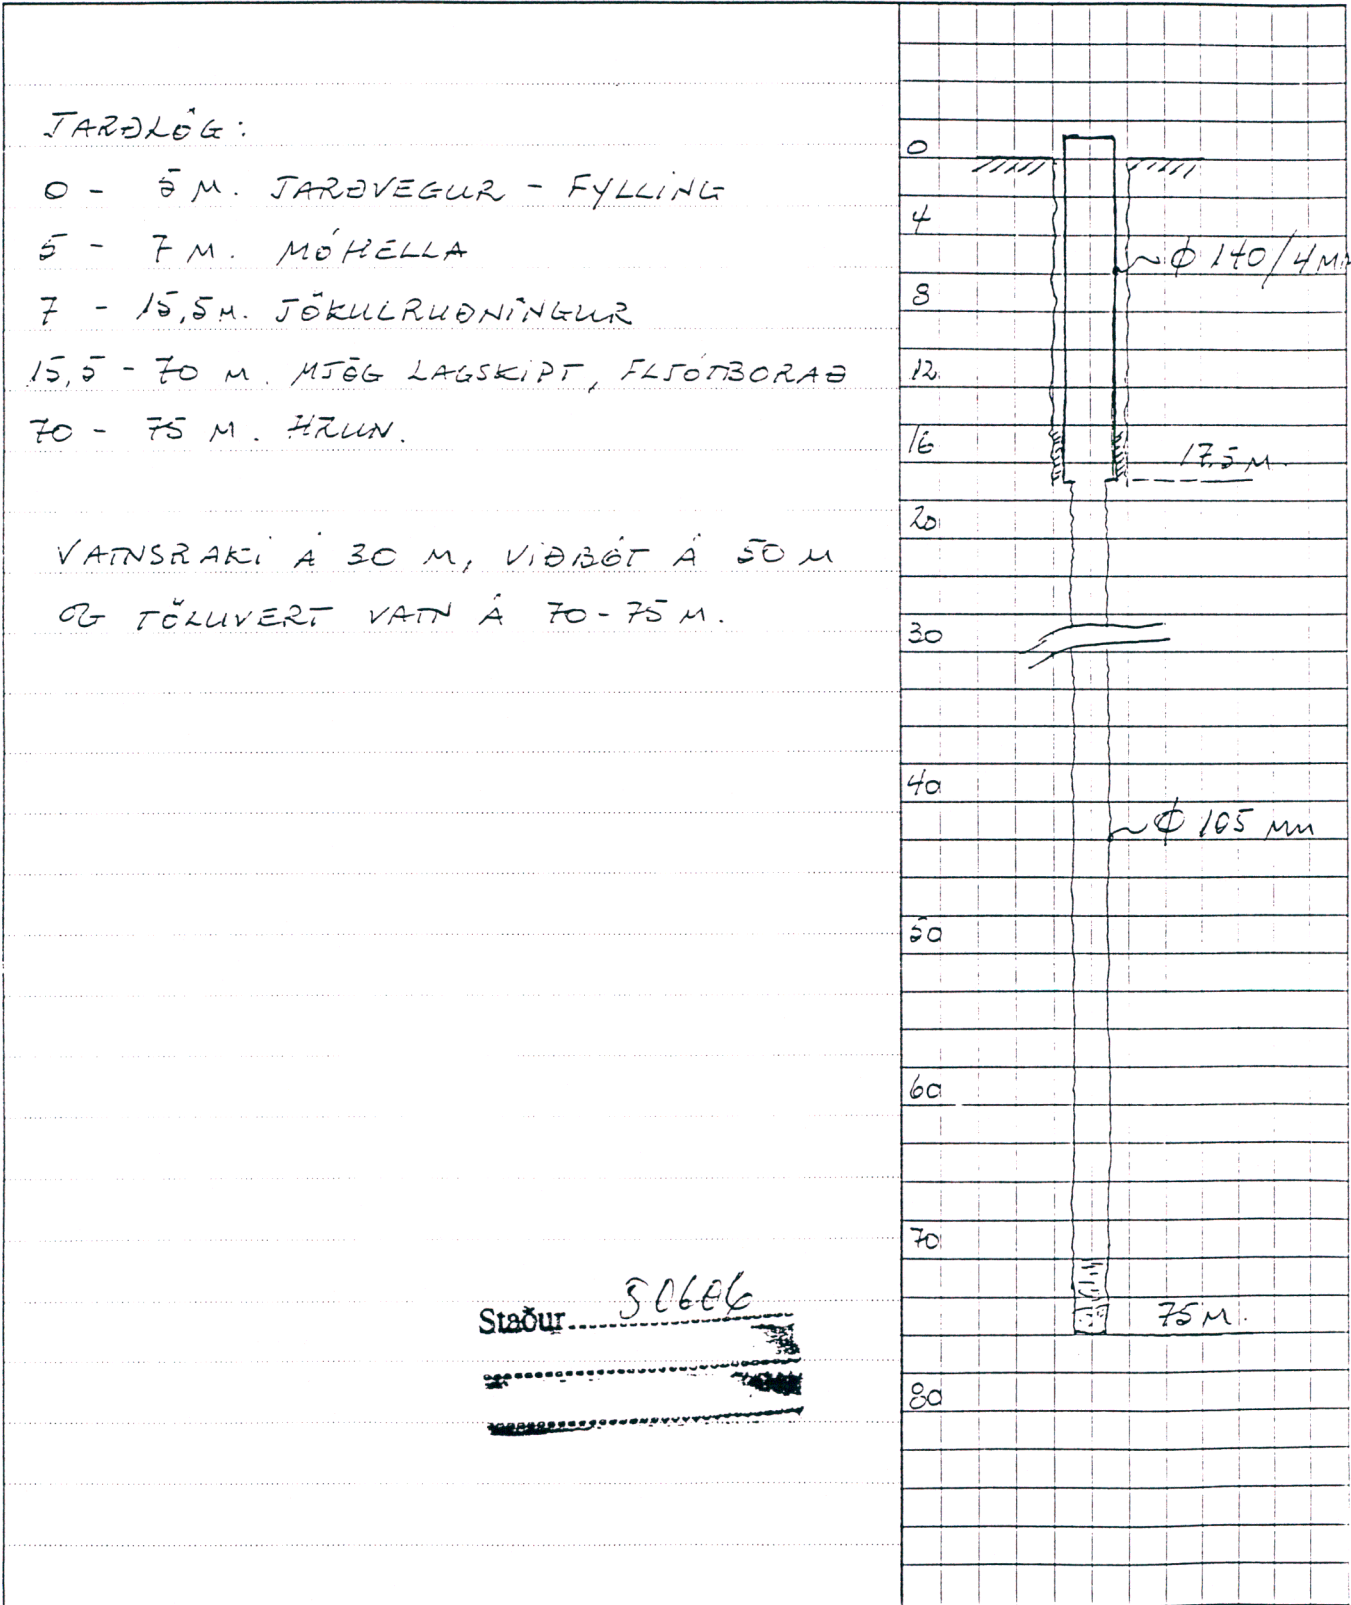 JARÐLÖG:
0 - 5 M. JARÐVEGUR - FYLLING
5 - 7 M. MÓHELLA
7 - 15,5 M. JÖKULRUÐNINGUR
15,5 - 70 M. MJÖG LAGSKIPT, FLJÓTBORAÐ
70 - 75 M. HRUN.
VATNSRAKI Á 30 M, VIÐBÓT Á 50 M
OG TÖLUVERT VATN Á 70-75 M.
Staður 50606
0
4
~ φ 140/4 MM
8
12
16
17,5 M.
20
30
40
~ φ 105 MM
50
60
70
75 M.
80